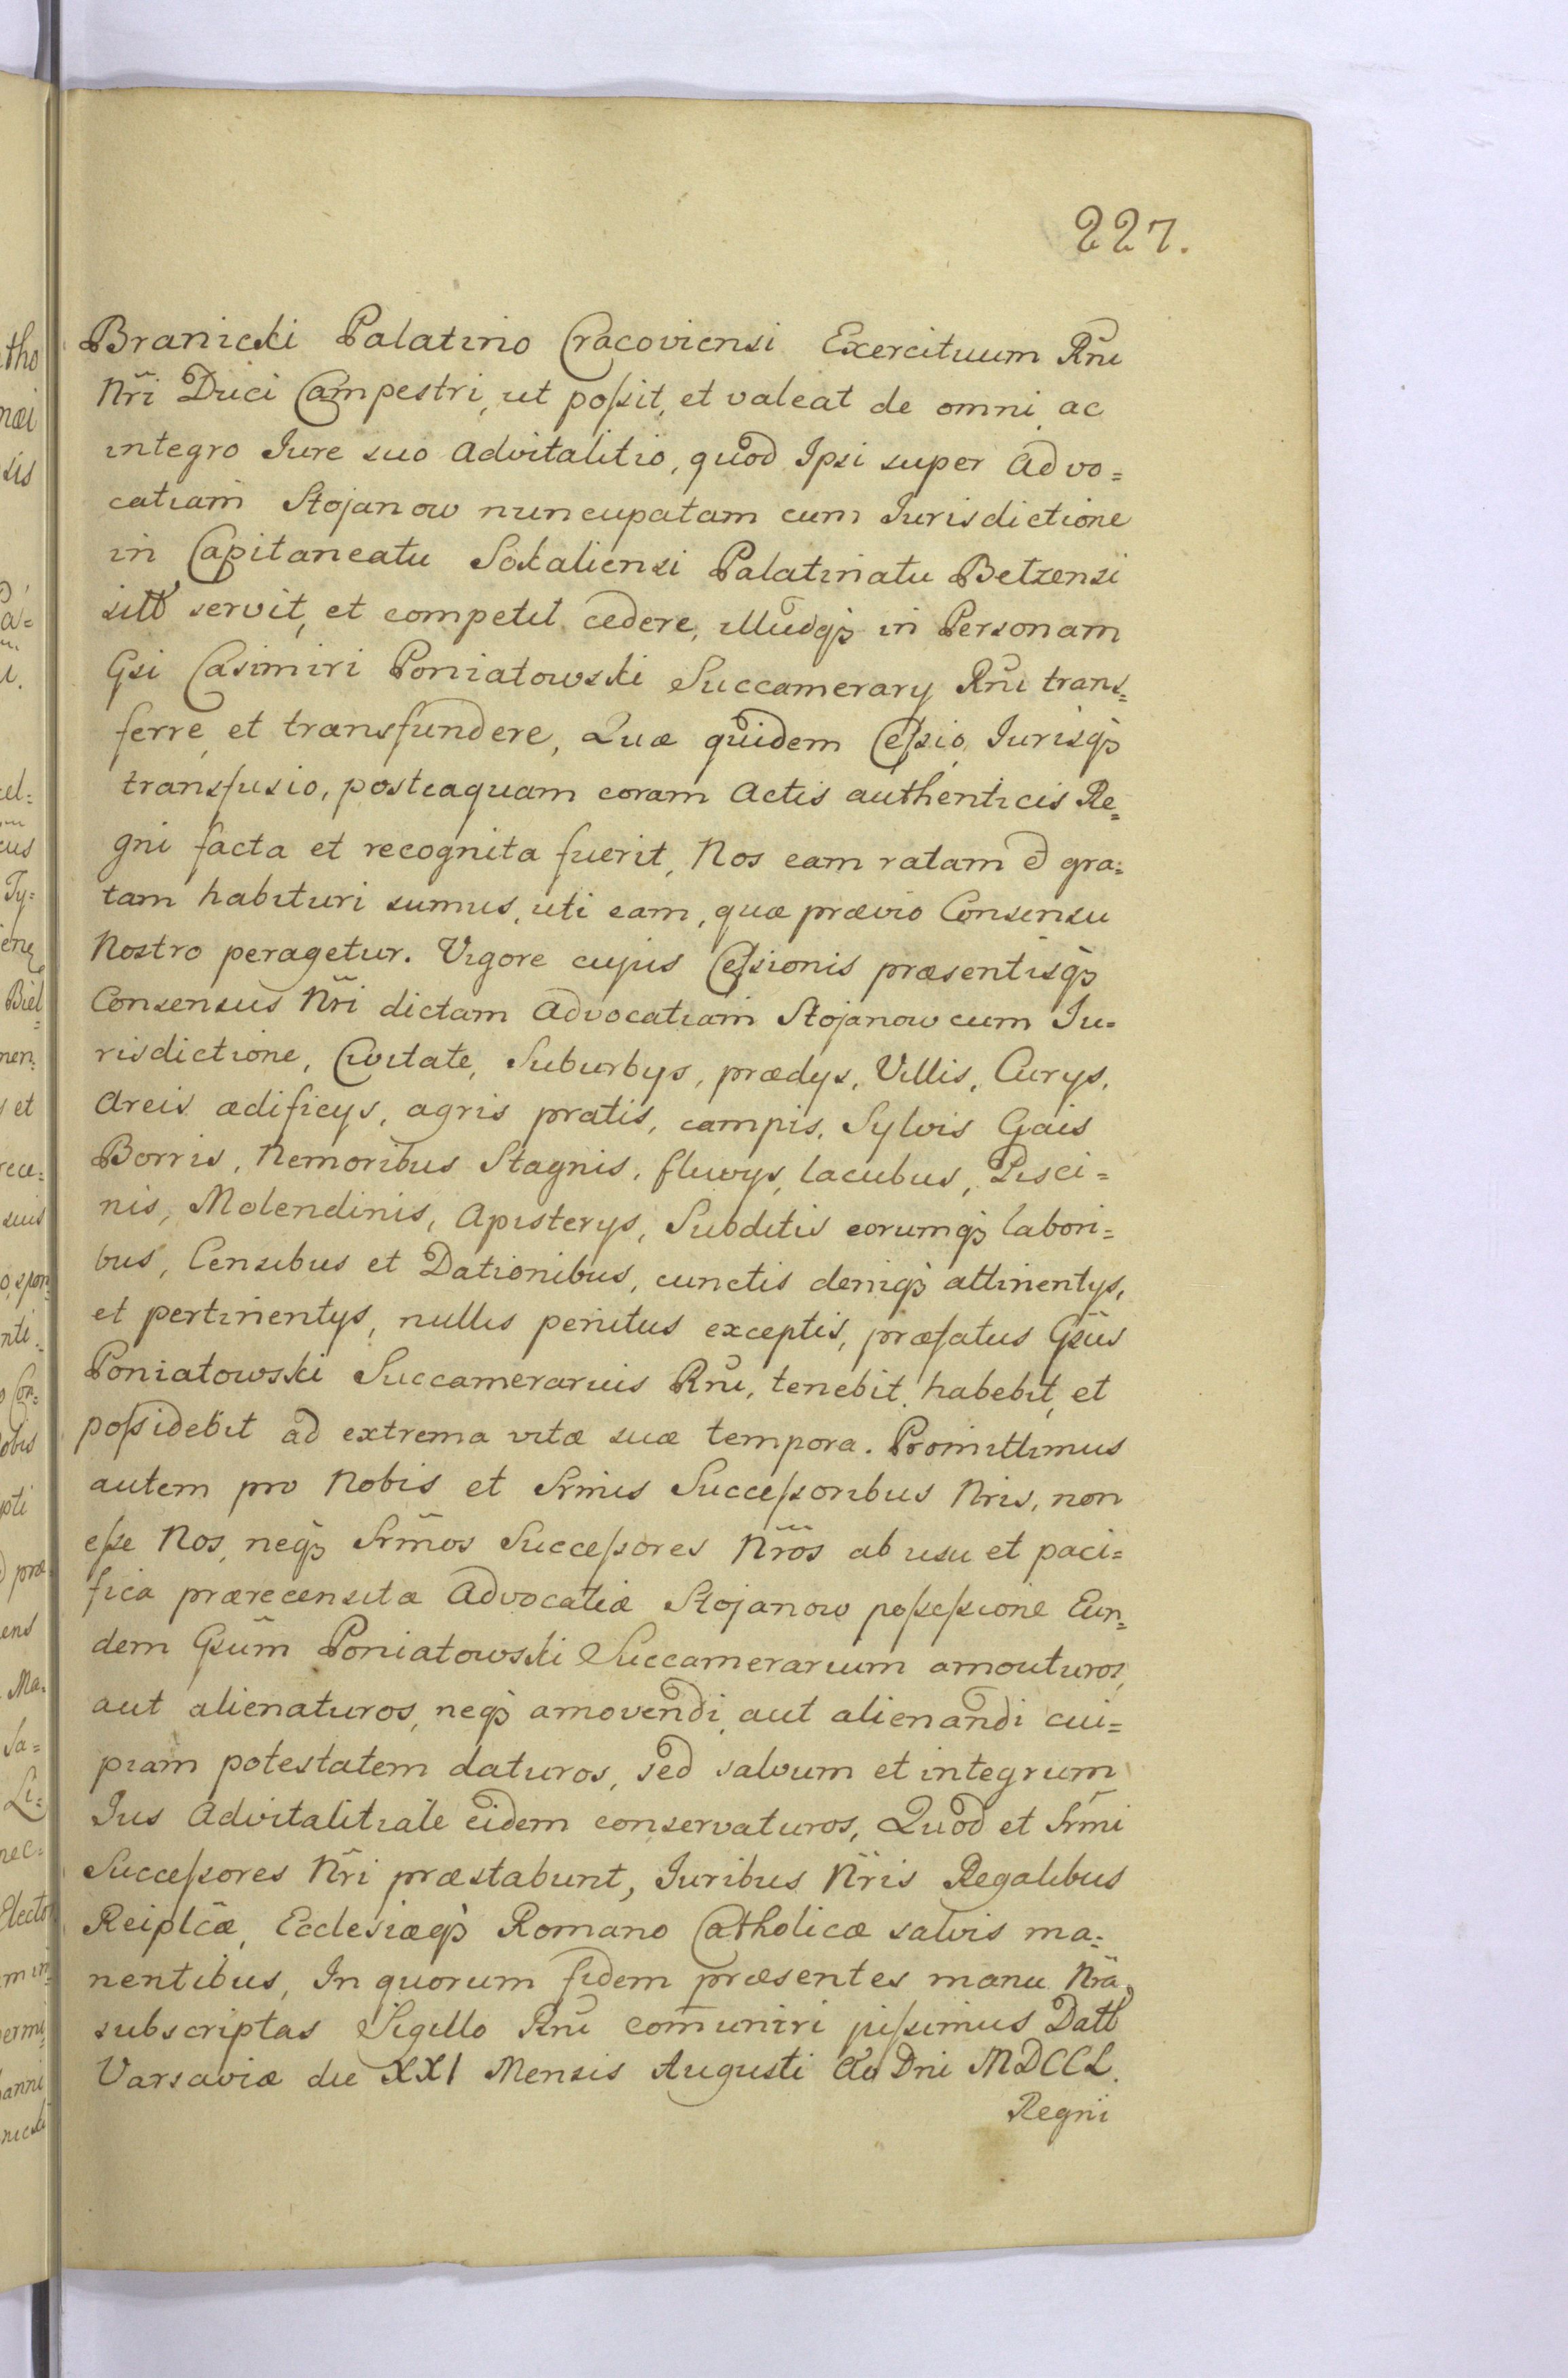 227.
Branicki Palatino Cracoviensi Exercituum Rñi
Nr̃i Duci Campestri, ut poſsit, et valeat de omni, ac
integro Iure suo Advitalitio, quod Ipsi super Advo=
catiam Stojanow nuncupatam cum Iurisdictione
in Capitaneatu Sokaliensi Palatinatu Betzensi
sitt servit, et competit cedere, illudq̃ in Personam
Gsi Casimiri Poniatowski Succamerarÿ Rñi trans=
ferre, et transfundere, Quæ quidem Ceſsio, Iurisq̃
transfusio, posteaquam coram Actis authenticis Re=
gni facta et recognita fuerit, Nos eam ratam & gra=
tam habituri sumus, uti eam, quæ prævio Consensu
Nostro peragetur. Vigore cujus Ceſsionis præsentisq̃
Consensus Nr̃i dictam Advocatiam Stojanow cum Iu=
risdictione, Civitate, Suburbÿs, prædÿs, Villis, Curÿs,
Areis ædificÿs, agris pratis, campis, Sylvis Gais
Borris, Nemoribus Stagnis, fluvÿs, lacubus, Pisci=
nis, Molendinis, Apisterÿs, Subditis eorumq̃ labori=
bus, Censibus et Dationibus, cunctis deniq̃ attinentÿs,
et pertinentÿs, nullis penitus exceptis, præfatus Gsũs
Poniatowski Succamerarius Rñi, tenebit, habebit, et
poſsidebit ad extrema vitæ suæ tempora. Promittimus
autem pro Nobis et Srmis Succeſsoribus Nris, non
eſse Nos, neq̃ Srm̃os Succeſsores Nr̃os ab usu et paci=
fica prærecensitæ Advocatiæ Stojanow poſseſsione Eun=
dem Gsum̃ Poniatowski Succamerarium amoturos,
aut alienaturos, neq̃ amovendi, aut alienandi cui=
piam potestatem daturos, sed salvum et integrum
Ius Advitalitiale eidem conservaturos, Quod et Srm̃i
Succeſsores Nr̃i præstabunt, Iuribus Nr̃is Regalibus
Reiplcæ, Ecclesiæq̃ Romano Catholicæ salvis ma=
nentibus, In quorum fidem præsentes manu Nrã,
subscriptas Sigillo Rñi com̃uniri juſsimus Datt
Varsaviæ die XXI Mensis Augusti Ao Dni MDCCL.
Regni